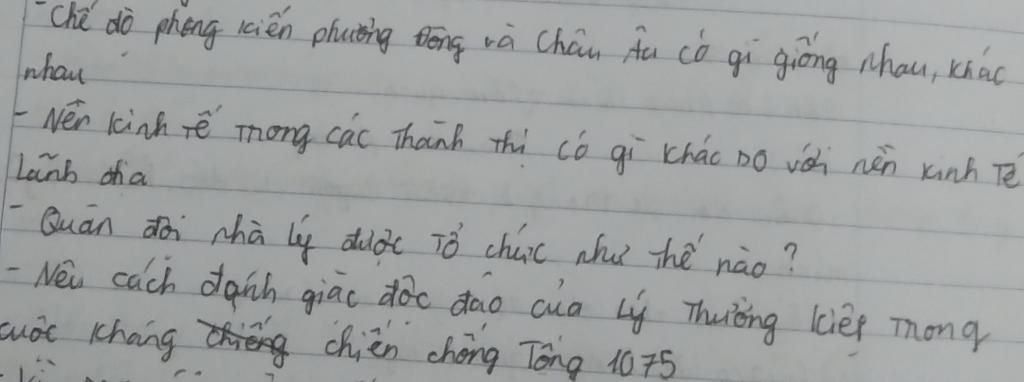 - Chế độ phong kiến phương Đông và Châu Âu có gì giống nhau, khác
nhau
- Nền kinh tế trong các thành thị có gì khác so với nền kinh tế
Lãnh địa
- Quân đội nhà Lý được tổ chức như thế nào?
- Nêu cách đánh giặc độc đáo của Lý Thường Kiệt trong
cuộc kháng chiến chống Tống 1075